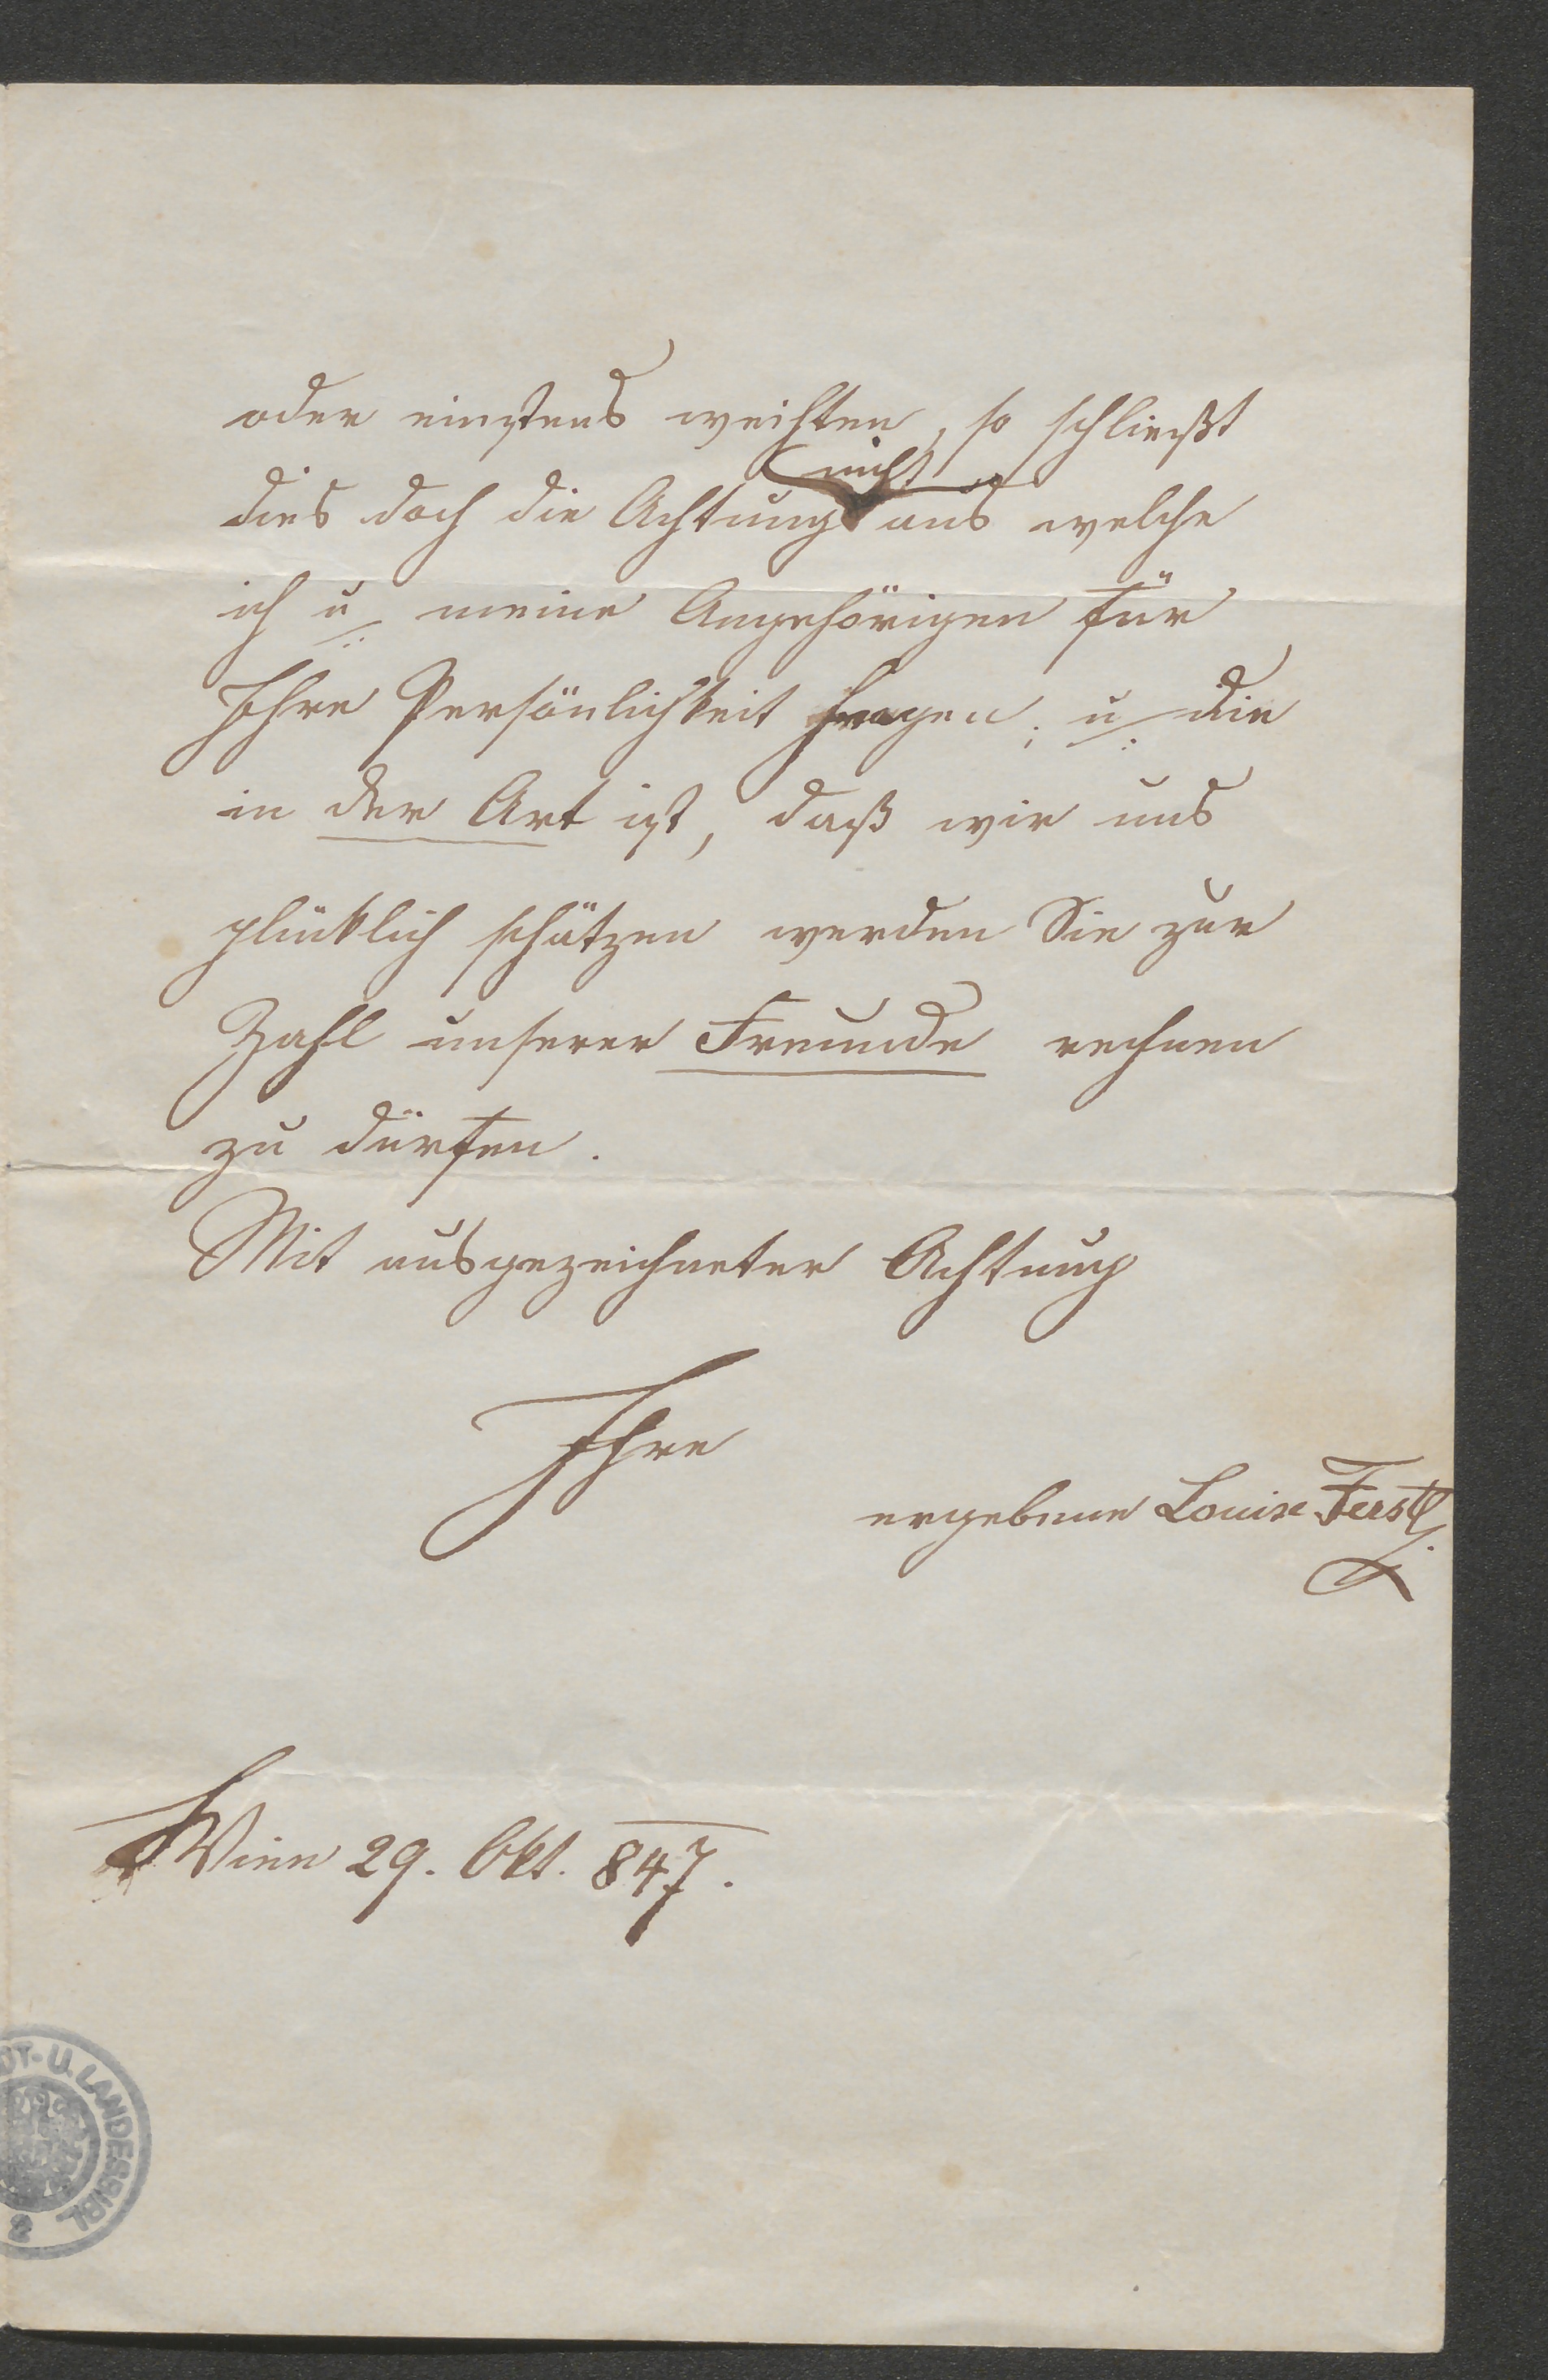 oder einstens weihten, so schließt
nicht
dies doch die Achtung aus welche
ich u: meine Angehörigen für
Ihre Persönlichkeit hegen; u: die
in der Art ist, daß wir uns
glücklich schätzen werden Sie zur
Zahl unserer Freunde rechnen
zu dürfen.
Mit ausgezeichneter Achtung
Ihre
ergebene Louise Ferstl
Wien 29. Okt. 847.
DT- U. LANDESBIBL